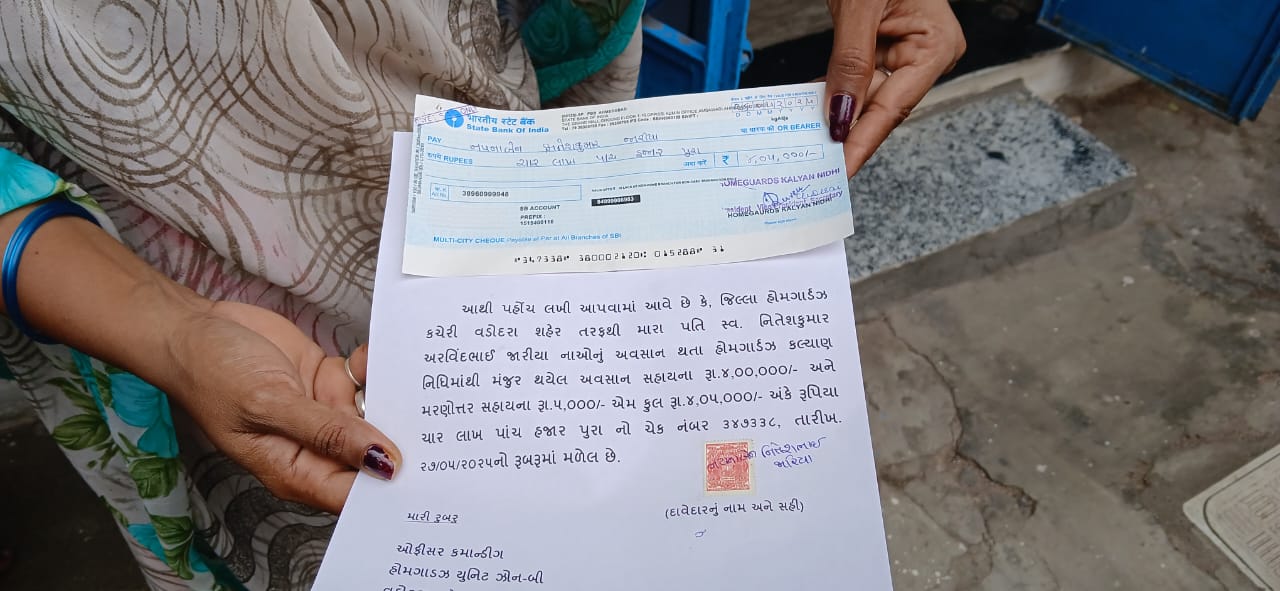 भारतीय स्टेट बैंक
State Bank Of India
PAY
या धारक को OR BEARER
રૂપયે RUPEES ચાર લાખ પાંચ હજાર પુરા
अदा करें ₹ ૪,૦૫,૦૦૦/-
38960999948
SB ACCOUNT
PREFIX :
1513400118
HOMEGUARDS KALYAN NIDHI
HOMEGAURDS KALYAN NIDHI
MULTI-CITY CHEQUE Payable at Par at All Branches of SBI
⑈347338⑈ 380002120⑆ 015288⑈ 31
આથી પહોંચ લખી આપવામાં આવે છે કે, જિલ્લા હોમગાર્ડઝ
કચેરી વડોદરા શહેર તરફથી મારા પતિ સ્વ. નિતેશકુમાર
અરવિંદભાઈ જારીયા નાઓનું અવસાન થતા હોમગાર્ડઝ કલ્યાણ
નિધિમાંથી મંજુર થયેલ અવસાન સહાયના રૂા.૪,૦૦,૦૦૦/- અને
મરણોત્તર સહાયના રૂા.૫,૦૦૦/- એમ કુલ રૂા.૪,૦૫,૦૦૦/- અંકે રૂપિયા
ચાર લાખ પાંચ હજાર પુરા નો ચેક નંબર ૩૪૭૩૩૮, તારીખ.
૨૭/૦૫/૨૦૨૫નો રૂબરૂમાં મળેલ છે.
(દાવેદારનું નામ અને સહી)
મારી રુબરુ
ઓફીસર કમાન્ડીગ
હોમગાડઝ યુનિટ ઝોન-બી